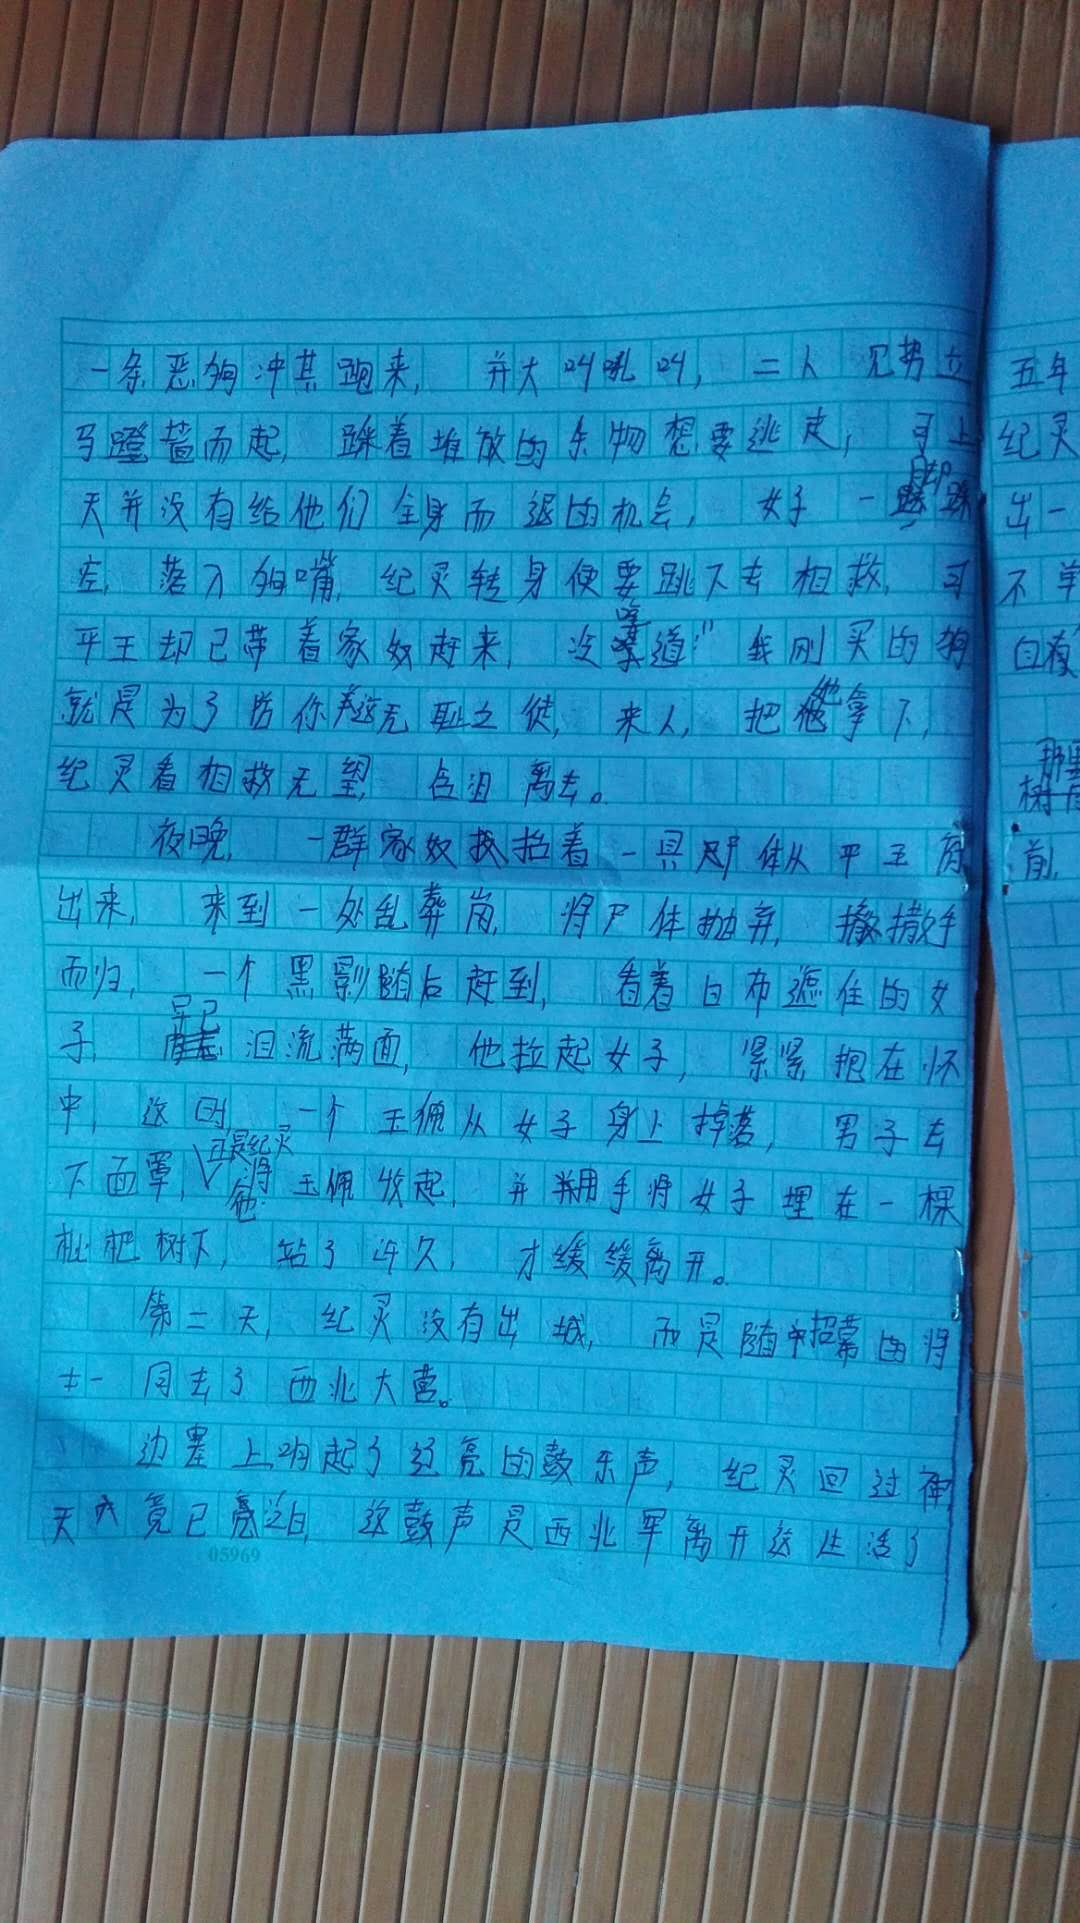 一条恶狗冲其跑来,并大叫吼叫,二人见势立
马蹬墙而起,踩着堆放的杂物想要逃走,可上
天并没有给他们全身而退的机会,女子一脚踩
空,落入狗嘴,纪灵转身便要跳下去相救,可
平王却已带着家奴赶来,没掌道"我刚买的狗
就是为了防你这无耻之徒,来人,把他拿下,
纪灵看相救无望,含泪离去。
夜晚,一群家奴抬着一具尸体从平王府
出来,来到一处乱葬岗,将尸体抛弃,撒手
而归,一个黑影随后赶到,看着白布遮住的女
子,早已泪流满面,他拉起女子,紧紧抱在怀
中,这时,一个玉佩从女子身上掉落,男子去
下面罩,正是纪灵他将玉佩收起,并用手将女子埋在一棵
枇杷树下,站了许久,才缓缓离开。
第二天,纪灵没有出城,而是随招募的将
士一同去了西北大营。
边塞上响起了嘹亮的鼓乐声,纪灵回过神
天竟已亮泛白,这鼓声是西北军离开这生活了
05969
五年
纪灵
出一
不单
白夜
那里
前,